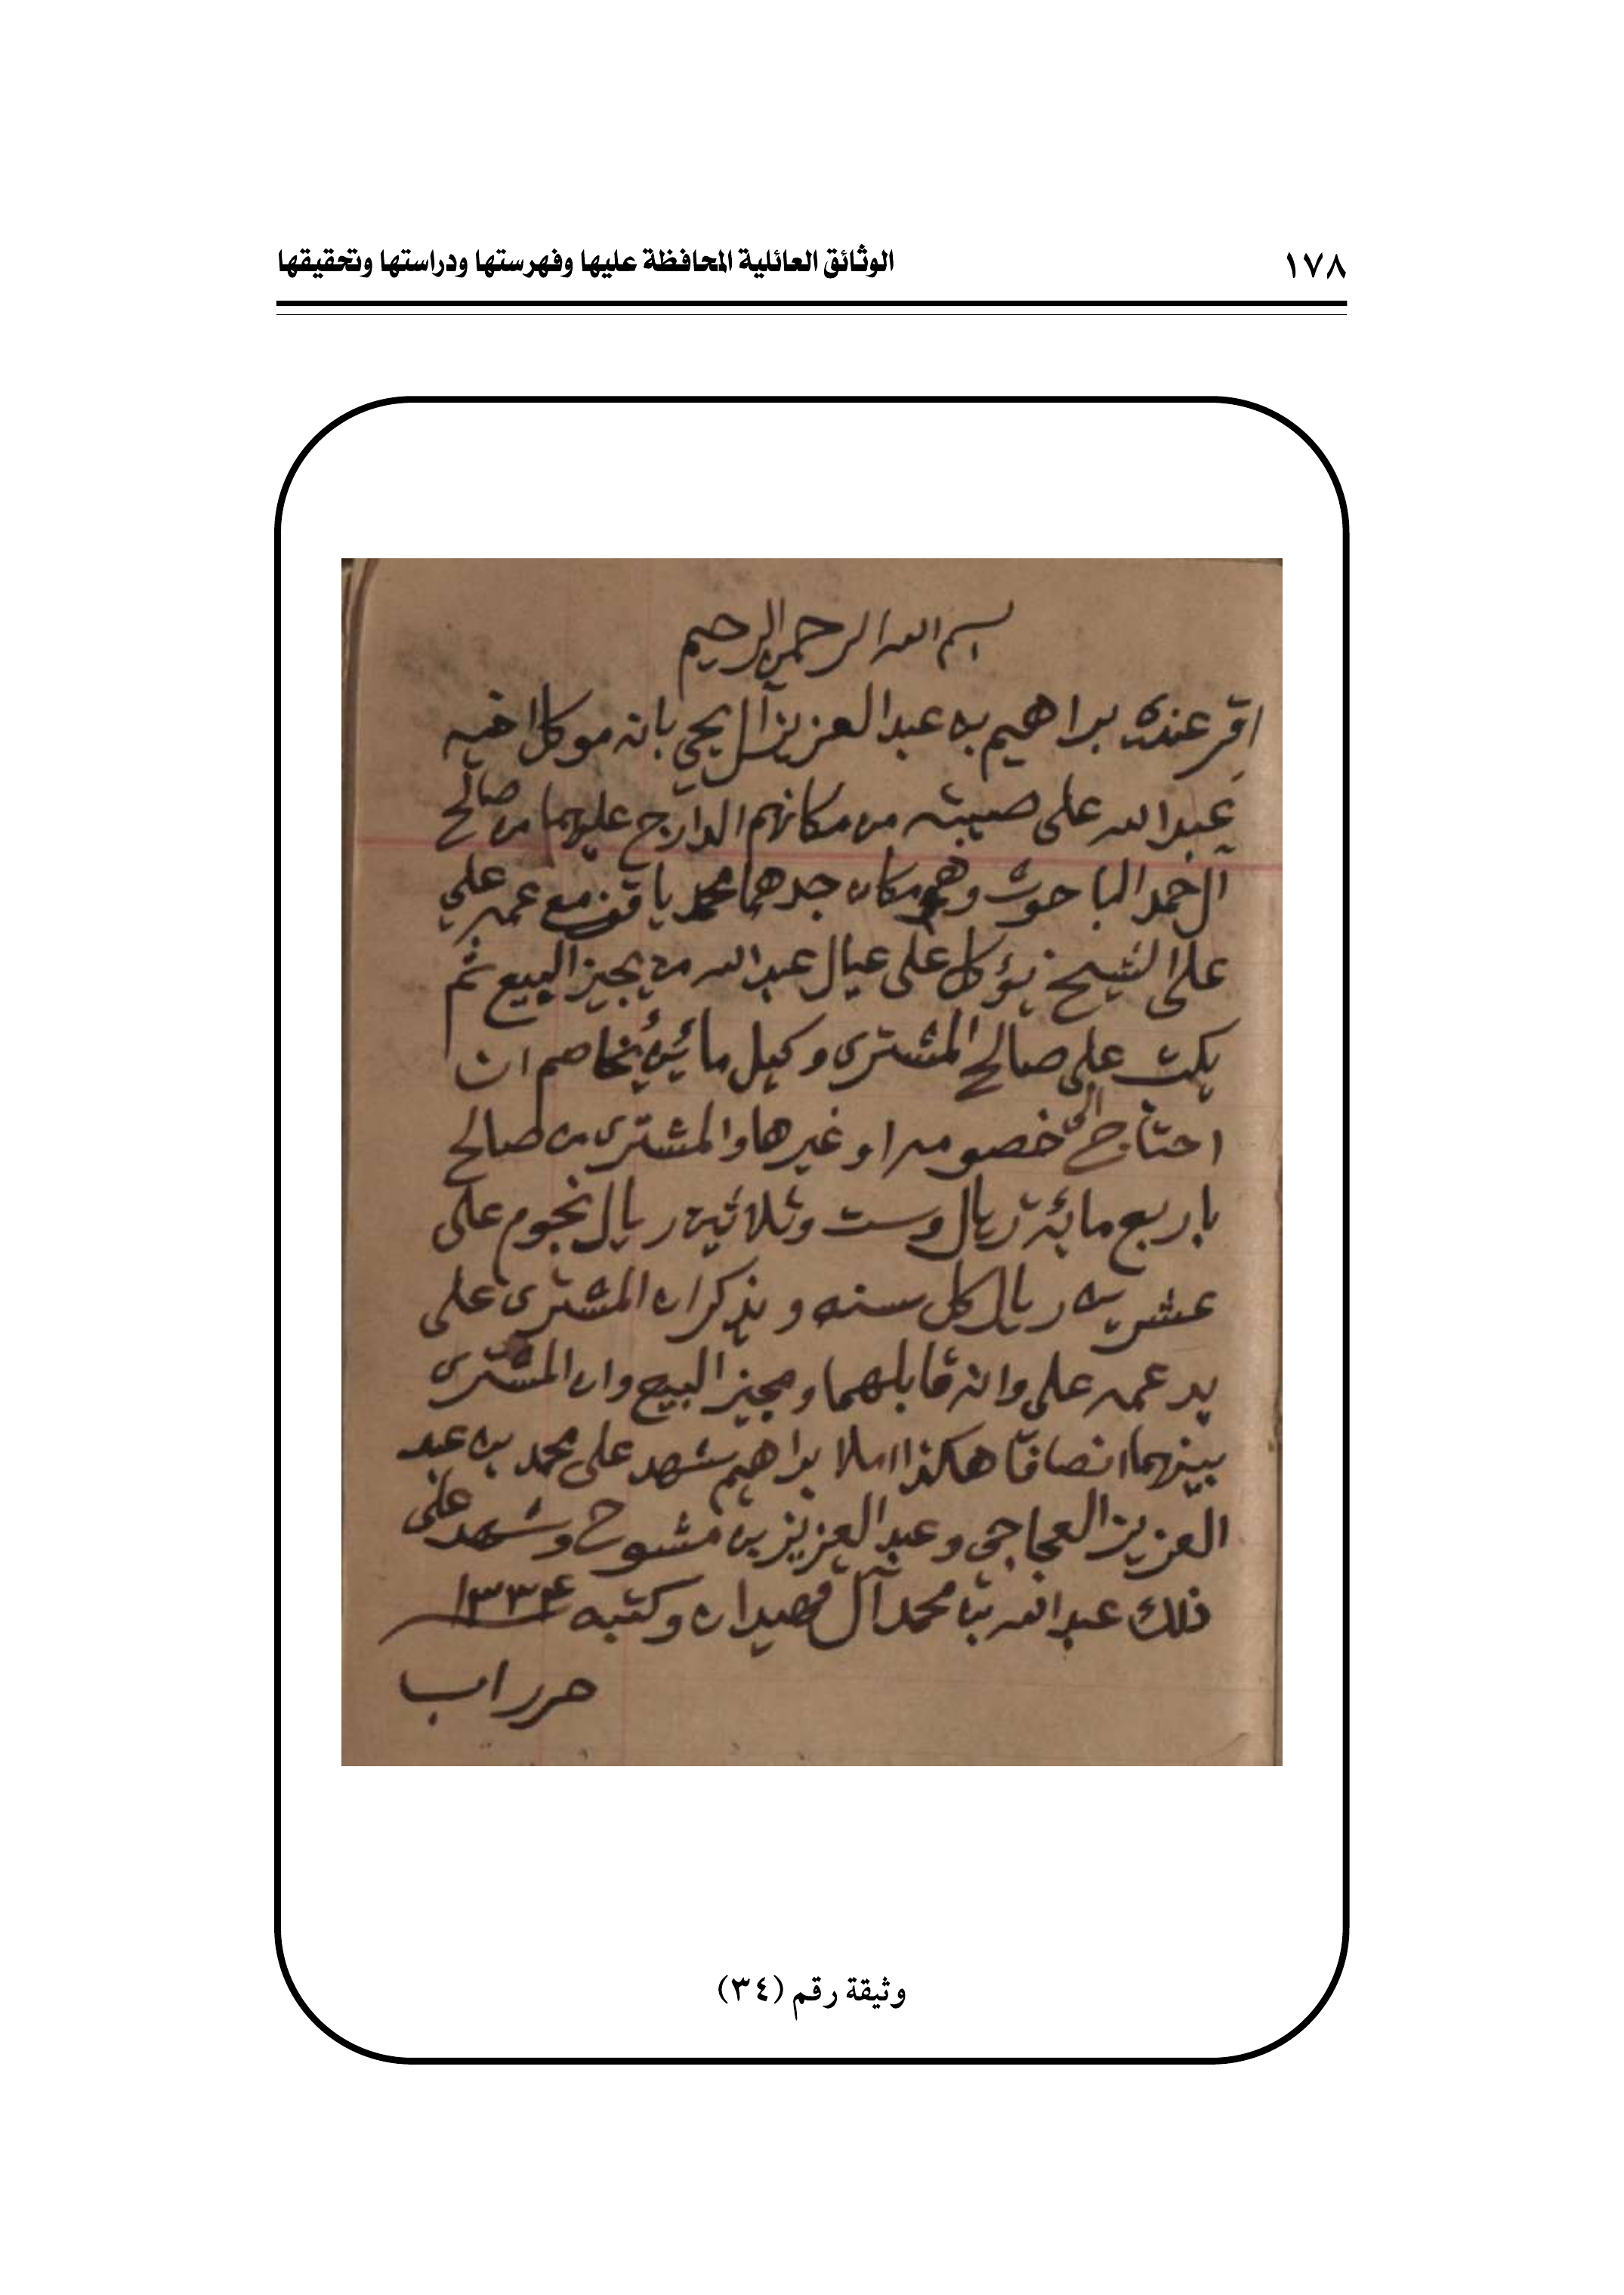 ١٧٨
الوثائق العائلية المحافظة عليها وفهرستها ودراستها وتحقيقها
بسم الله الرحمن الرحيم
اقر عندي براهيم بن عبد العزيز آل يحيى بانه موكل اخيه
عبد الله على صيبته من مكانهم الدارج عليهما من صالح
آل حمد الباحوث وهو مكان جدهما محمد مع عمه علي
على الشيخ يؤكل على عيال عبد الله من يجيز البيع ثم
يكتب على صالح المشتري وكيل يخاصم ان
احتاج الى خصومه او غيرها والمشترى من صالح
باربع مائة ريال وست وثلاثين ريال نجوم على
عشرين ريال كل سنه ويذكر ان المشترى على
يد عمه على وانه قابلهما ومجيز البيع وان المشترى
بينهما انصافا هكذا املا براهيم شهد على محمد بن عبد
العزيز العجاجي وعبد العزيز بن مشوح وشهد على
ذلك عبد الله بن محمد آل فهيدان وكتبه ١٣٣٤
حرر اب
وثيقة رقم (٣٤)